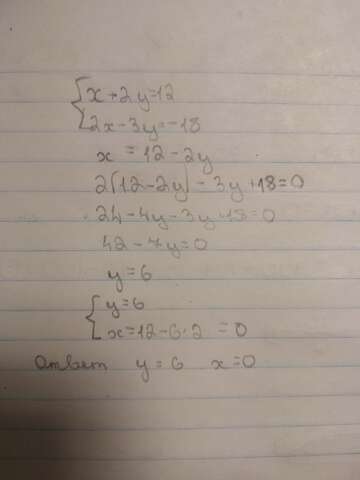 x+2y=12
2x-3y=-18
x = 12-2y
2(12-2y)-3y+18=0
24-4y-3y+18=0
42-7y=0
y=6
y=6
x=12-6·2=0
Ответ y=6 x=0